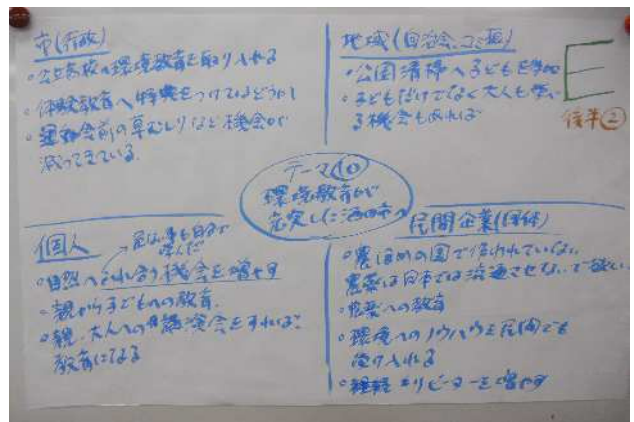 市(行政)
・公立高校へ環境教育を取り入れる
・体験教育へ特典をつけてはどうか
・運動会前の草むしりなど機会が
減ってきている。
地域(自治会、コミ振)
・公園清掃へ子どもを
・子どもだけでなく大人も学べ
る機会もあれば
E
後半②
テーマ⑩
環境教育が
充実した酒田市へ
個人
・自然へふれあう機会を増やす
・親から子どもへの教育。
・親、大人への講演会をすれば
教育になる
民間企業(団体)
・農
農薬は日本では流通させないで欲しい。
・農薬への教育
・環境へのノウハウを民間でも
受け入れる
・リピーターを増やす